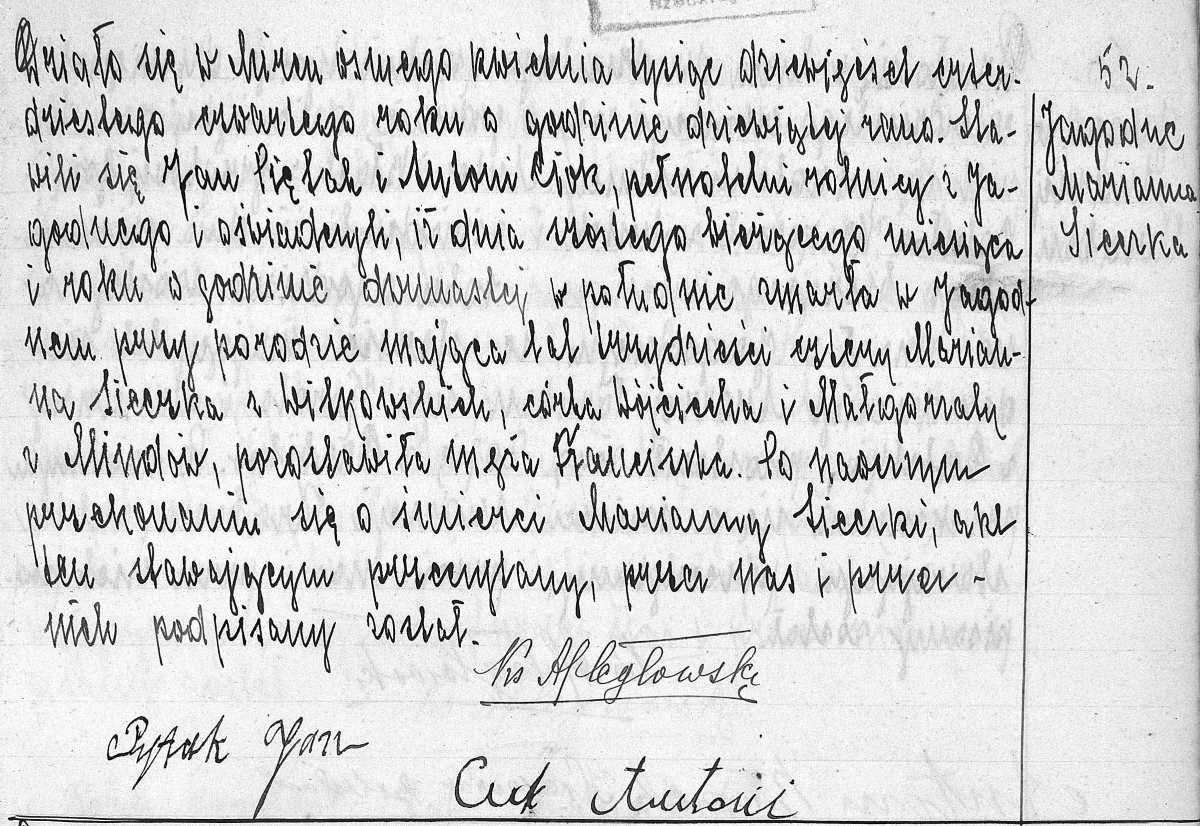 Działo się w Mircu ósmego kwietnia tysiąc dziewięćset czter-
dziestego czwartego roku o godzinie dziewiątej rano. Sta-
wili się Jan Piętak i Antoni Ciok, pełnoletni rolnicy z Ja-
godnego i oświadczyli, iż dnia szóstego bieżącego miesiąca
i roku o godzinie dwunastej w południe zmarła w Jagod-
nem przy porodzie mająca lat trzydzieści cztery Marian-
na Sieczka z Witkowskich, córka Wojciecha i Małgorzaty
z Mindów, pozostawiła męża Franciszka. Po naocznym
przekonaniu się o śmierci Marianny Sieczki, akt
ten stawającym przeczytany, przez nas i przez
nich podpisany został.
52.
Jagodne
Marianna
Sieczka
Ks
Jan
Antoni